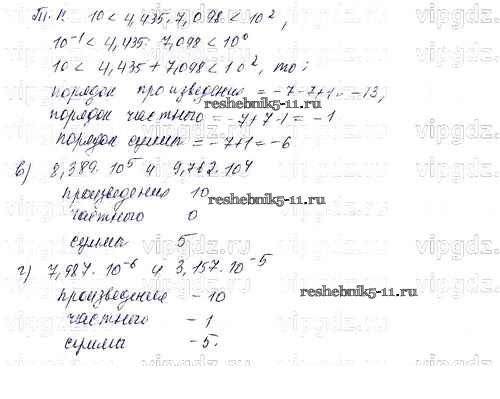 Т.к. 10 < 4,435·7,098 < 10²,
10⁻¹ < 4,435 : 7,098 < 10⁰
10 < 4,435 + 7,098 < 10², то:
порядок произведения = -7-7+1 = -13,
порядок частного = -7+7-1 = -1
порядок суммы = -7+1 = -6
в) 8,389·10⁵ и 9,762·10⁴
произведения 10
частного 0
суммы 5
г) 7,987·10⁻⁶ и 3,157·10⁻⁵
произведения -10
частного -1
суммы -5.
reshebnik5-11.ru
reshebnik5-11.ru
reshebnik5-11.ru
vipgdz.ru